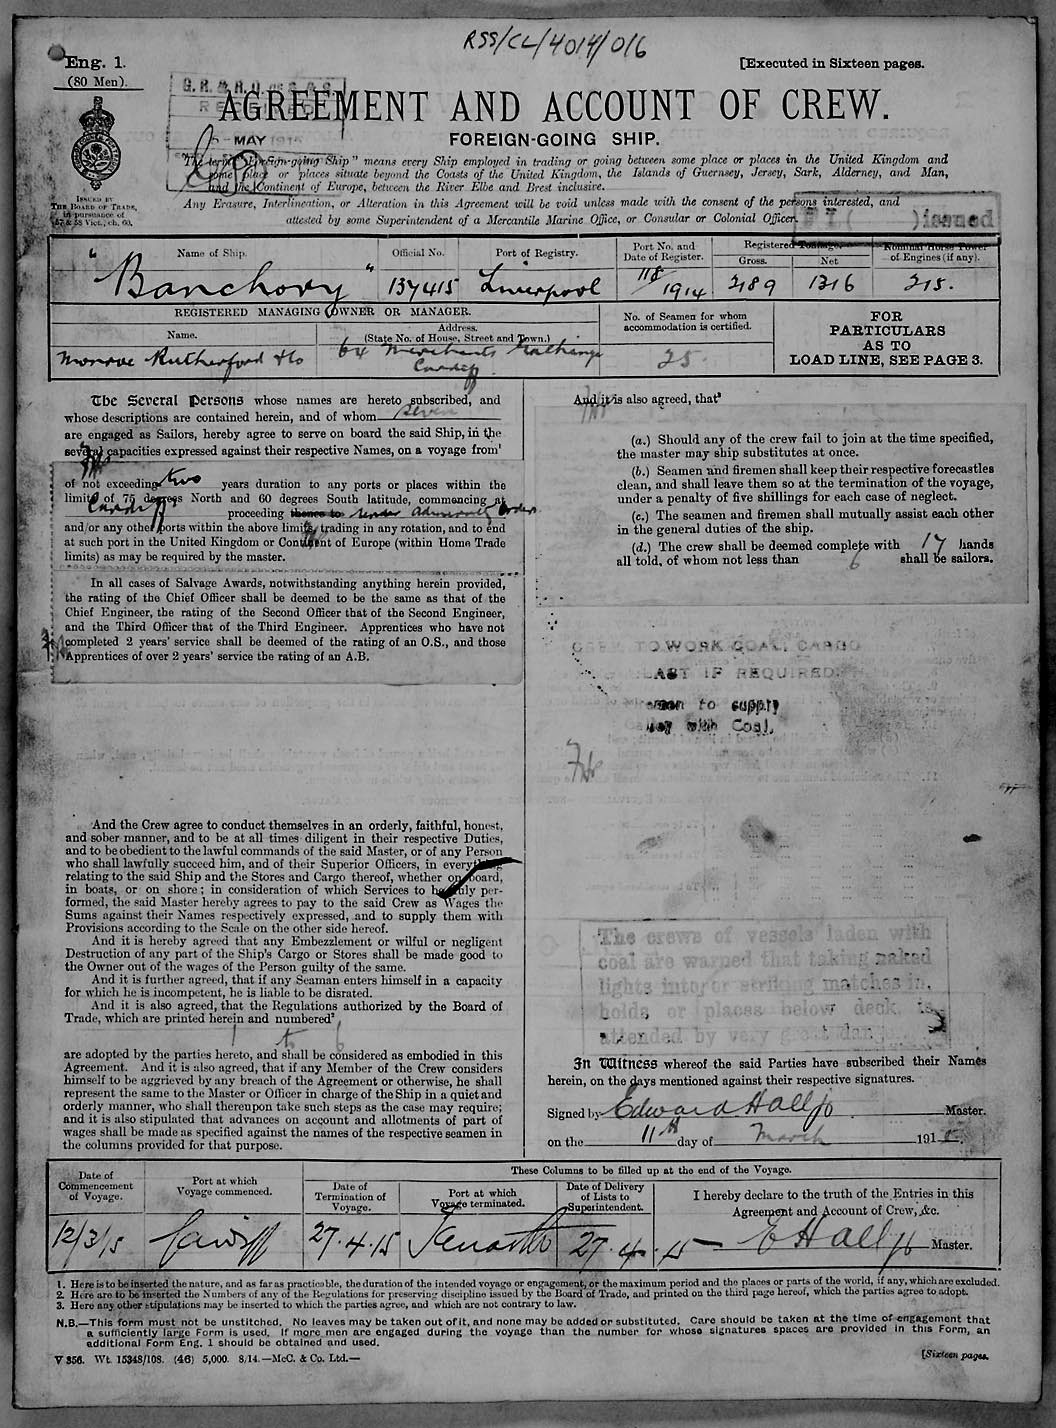 RSS/CL/4014/016
Eng. 1.
(80 Men).
[Executed in Sixteen pages.
G. R. & R. O. of S. & S.
AGREEMENT AND ACCOUNT OF CREW.
MAY 1915
FOREIGN-GOING SHIP.
The term "Foreign-going Ship" means every Ship employed in trading or going between some place or places in the United Kingdom and
some place or places situate beyond the Coasts of the United Kingdom, the Islands of Guernsey, Jersey, Sark, Alderney, and Man,
and the Continent of Europe, between the River Elbe and Brest inclusive.
ISSUED BY
THE BOARD OF TRADE,
in pursuance of
57 & 58 Vict., ch. 60.
Any Erasure, Interlineation, or Alteration in this Agreement will be void unless made with the consent of the persons interested, and
attested by some Superintendent of a Mercantile Marine Office, or Consular or Colonial Officer.
( ) issued
Name of Ship.
Official No.
Port of Registry.
Port No. and
Date of Register.
Registered Tonnage.
Gross.
Net
Nominal Horse Power
of Engines (if any).
"Banchory"
137415
Liverpool
118/1914
2189
1316
215.
REGISTERED MANAGING OWNER OR MANAGER.
Name.
Address.
(State No. of House, Street and Town.)
No. of Seamen for whom
accommodation is certified.
FOR
PARTICULARS
AS TO
LOAD LINE, SEE PAGE 3.
Monroe Rutherford & Co
64 Merchants Exchange
Cardiff
25
The Several Persons whose names are hereto subscribed, and
whose descriptions are contained herein, and of whom seven
are engaged as Sailors, hereby agree to serve on board the said Ship, in the
several capacities expressed against their respective Names, on a voyage from¹
of not exceeding two years duration to any ports or places within the
limits of 75 degrees North and 60 degrees South latitude, commencing at
Cardiff proceeding thence to under Admiralty Orders
and/or any other ports within the above limits, trading in any rotation, and to end
at such port in the United Kingdom or Continent of Europe (within Home Trade
limits) as may be required by the master.
In all cases of Salvage Awards, notwithstanding anything herein provided,
the rating of the Chief Officer shall be deemed to be the same as that of the
Chief Engineer, the rating of the Second Officer that of the Second Engineer,
and the Third Officer that of the Third Engineer. Apprentices who have not
completed 2 years' service shall be deemed of the rating of an O.S., and those
Apprentices of over 2 years' service the rating of an A.B.
And the Crew agree to conduct themselves in an orderly, faithful, honest,
and sober manner, and to be at all times diligent in their respective Duties,
and to be obedient to the lawful commands of the said Master, or of any Person
who shall lawfully succeed him, and of their Superior Officers, in everything
relating to the said Ship and the Stores and Cargo thereof, whether on board,
in boats, or on shore; in consideration of which Services to be duly per-
formed, the said Master hereby agrees to pay to the said Crew as Wages the
Sums against their Names respectively expressed, and to supply them with
Provisions according to the Scale on the other side hereof.
And it is hereby agreed that any Embezzlement or wilful or negligent
Destruction of any part of the Ship's Cargo or Stores shall be made good to
the Owner out of the wages of the Person guilty of the same.
And it is further agreed, that if any Seaman enters himself in a capacity
for which he is incompetent, he is liable to be disrated.
And it is also agreed, that the Regulations authorized by the Board of
Trade, which are printed herein and numbered²
1 to 6
are adopted by the parties hereto, and shall be considered as embodied in this
Agreement. And it is also agreed, that if any Member of the Crew considers
himself to be aggrieved by any breach of the Agreement or otherwise, he shall
represent the same to the Master or Officer in charge of the Ship in a quiet and
orderly manner, who shall thereupon take such steps as the case may require;
and it is also stipulated that advances on account and allotments of part of
wages shall be made as specified against the names of the respective seamen in
the columns provided for that purpose.
And it is also agreed, that³
(a.) Should any of the crew fail to join at the time specified,
the master may ship substitutes at once.
(b.) Seamen and firemen shall keep their respective forecastles
clean, and shall leave them so at the termination of the voyage,
under a penalty of five shillings for each case of neglect.
(c.) The seamen and firemen shall mutually assist each other
in the general duties of the ship.
(d.) The crew shall be deemed complete with 17 hands
all told, of whom not less than 6 shall be sailors.
TO WORK COAL, CARGO
IF REQUIRED.
to supply
with Coal,
The crews of vessels laden with
coal are warned that taking naked
lights into, or striking matches in,
holds or places below deck is
attended by very great danger.
In Witness whereof the said Parties have subscribed their Names
herein, on the days mentioned against their respective signatures.
Signed by Edward Hall jr Master.
on the 11th day of March 1915.
Date of
Commencement
of Voyage.
Port at which
Voyage commenced.
These Columns to be filled up at the end of the Voyage.
Date of
Termination of
Voyage.
Port at which
Voyage terminated.
Date of Delivery
of Lists to
Superintendent.
I hereby declare to the truth of the Entries in this
Agreement and Account of Crew, &c.
12/3/15
Cardiff
27.4.15
Penarth
27.4.15
E Hall jr Master.
1. Here is to be inserted the nature, and as far as practicable, the duration of the intended voyage or engagement, or the maximum period and the places or parts of the world, if any, which are excluded.
2. Here are to be inserted the Numbers of any of the Regulations for preserving discipline issued by the Board of Trade, and printed on the third page hereof, which the parties agree to adopt.
3. Here any other stipulations may be inserted to which the parties agree, and which are not contrary to law.
N.B.—This form must not be unstitched. No leaves may be taken out of it, and none may be added or substituted. Care should be taken at the time of engagement that
a sufficiently large Form is used. If more men are engaged during the voyage than the number for whose signatures spaces are provided in this Form, an
additional Form Eng. 1 should be obtained and used.
V 356. Wt. 15348/108. (46) 5,000. 8/14.—McC. & Co. Ltd.—
[Sixteen pages.